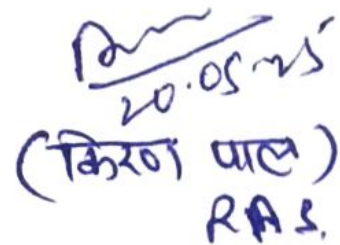 20.05.25
(किरण पाल)
RAS.